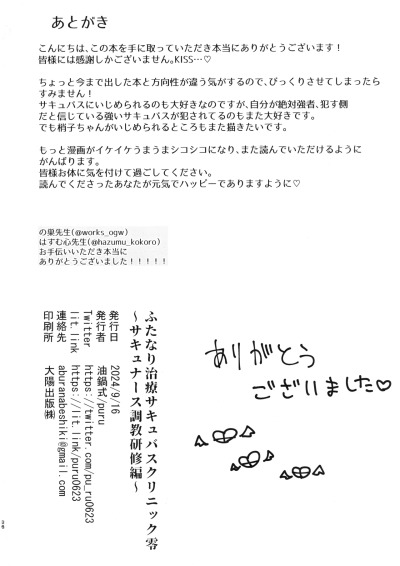 あとがき
こんにちは、この本を手に取っていただき本当にありがとうございます！
皆様には感謝しかございません。KISS…♡
ちょっと今まで出した本と方向性が違う気がするので、びっくりさせてしまったら
すみません！
サキュバスにいじめられるのも大好きなのですが、自分が絶対強者、犯す側
だと信じている強いサキュバスが犯されてるのもまた大好きです。
でも梢子ちゃんがいじめられるところもまた描きたいです。
もっと漫画がイケイケうまうまシコシコになり、また読んでいただけるように
がんばります。
皆様お体に気を付けて過ごしてください。
読んでくださったあなたが元気でハッピーでありますように♡
の巣先生(@works_ogw)
はずむ心先生(@hazumu_kokoro)
お手伝いいただき本当に
ありがとうございました！！！！！
ふたなり治療サキュバスクリニック零
～サキュナース調教研修編～
発行日 2024/9/16
発行者 油鍋式/puru
Twitter https://twitter.com/pu_ru0623
lit.link https://lit.link/puru0623
連絡先 aburanabeshiki@gmail.com
印刷所 大陽出版㈱
ありがとう
ございました♡
36